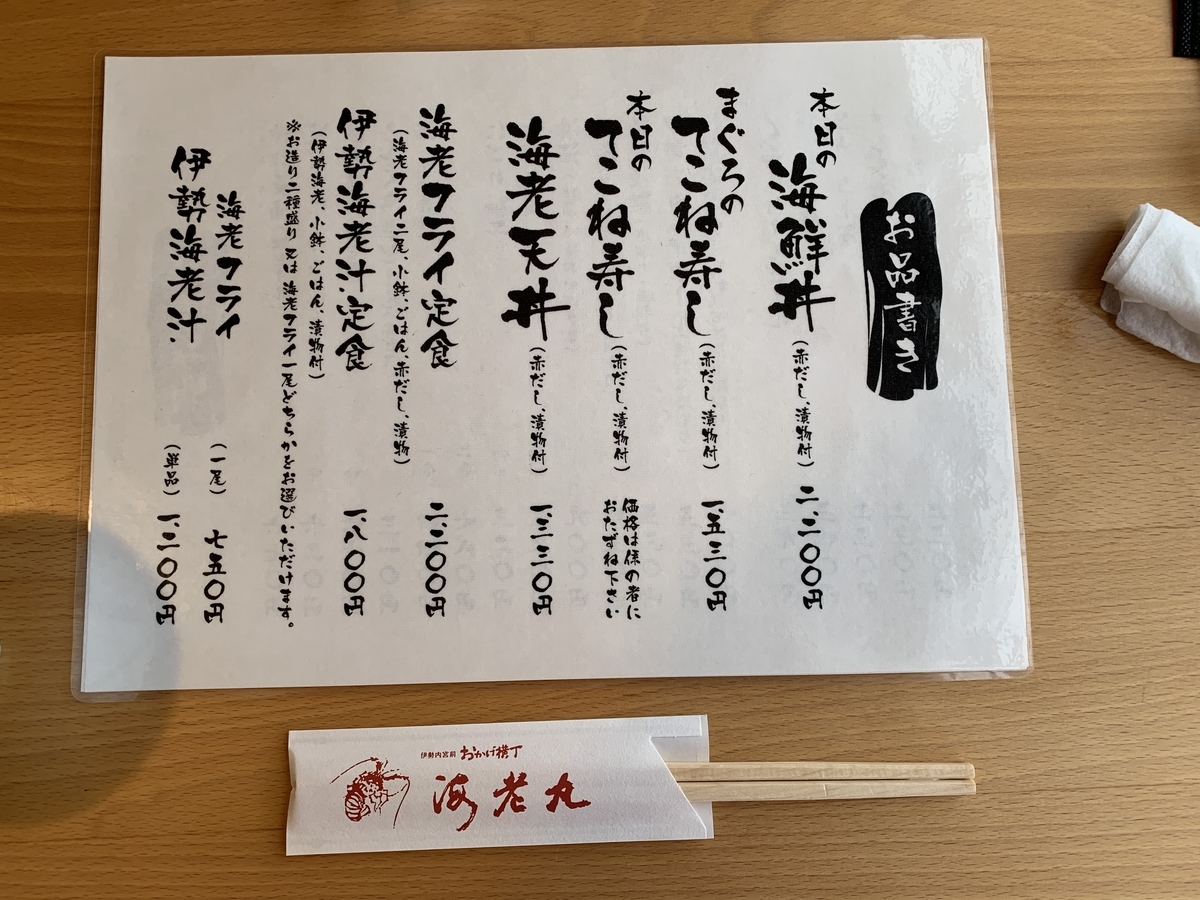 お品書き
本日の
海鮮丼
(赤だし、漬物付)
二、二〇〇円
まぐろの
てこね寿し
(赤だし、漬物付)
一、五三〇円
本日の
てこね寿し
(赤だし、漬物付)
価格は係の者に
おたずね下さい
海老天丼
(赤だし、漬物付)
一、三三〇円
海老フライ定食
二、二〇〇円
(海老フライ二尾、小鉢、ごはん、赤だし、漬物)
伊勢海老汁定食
一、八〇〇円
(伊勢海老、小鉢、ごはん、漬物付)
※お造り二種盛り又は海老フライ一尾どちらかをお選びいただけます。
海老フライ
(一尾)
七五〇円
伊勢海老汁
(単品)
一、二〇〇円
伊勢内宮前 おかげ横丁
海老丸